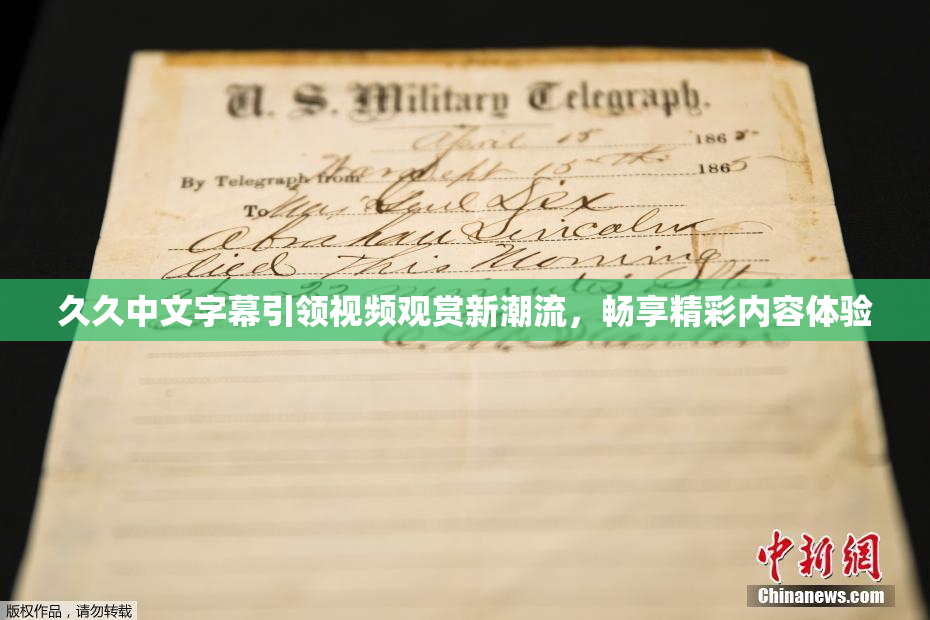 U. S. Military Telegraph.
April 15 1865
By Telegraph from War Dept 15th 1865
To Maj Genl Dix
Abraham Lincoln
died This Morning
22 minutes after
久久中文字幕引领视频观赏新潮流，畅享精彩内容体验
E. M. Stanton
中新网
Chinanews.com
版权作品，请勿转载